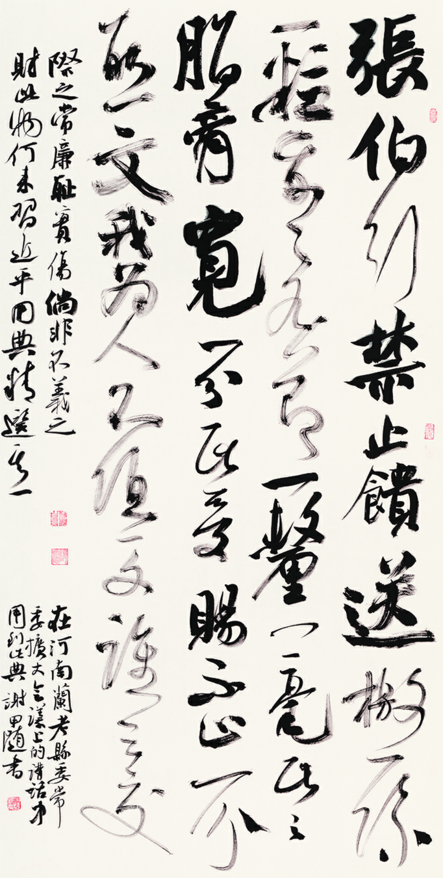 張伯行禁止饋送檄一絲
一粒我之名節一釐一毫民之
脂膏寬一分民受賜不止一分
取一文我为人不值一文誰云交
際之常廉耻實傷倘非不義之
財此物何来習近平用典精選之一
在河南蘭考縣委常
委擴大会議上的講話中
用到此典謝隨書